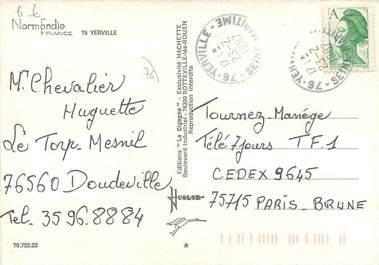 6 €
Normandie
FRANCE
76 YERVILLE
76
Mr Chevalier
Huguette
Le Torp-Mesnil
76560 Doudeville
Tel. 35.96.88.84
76.752.23
Editions "La Cigogne" - Exclusivité HACHETTE
Boulevard Industriel - 76300 SOTTEVILLE-lès-ROUEN
Reproduction interdite
COLOR
76 - YERVILLE - SEINE MARITIME
A
Tournez-Manège
Télé 7 jours TF.1
CEDEX 9645
75715 PARIS-BRUNE